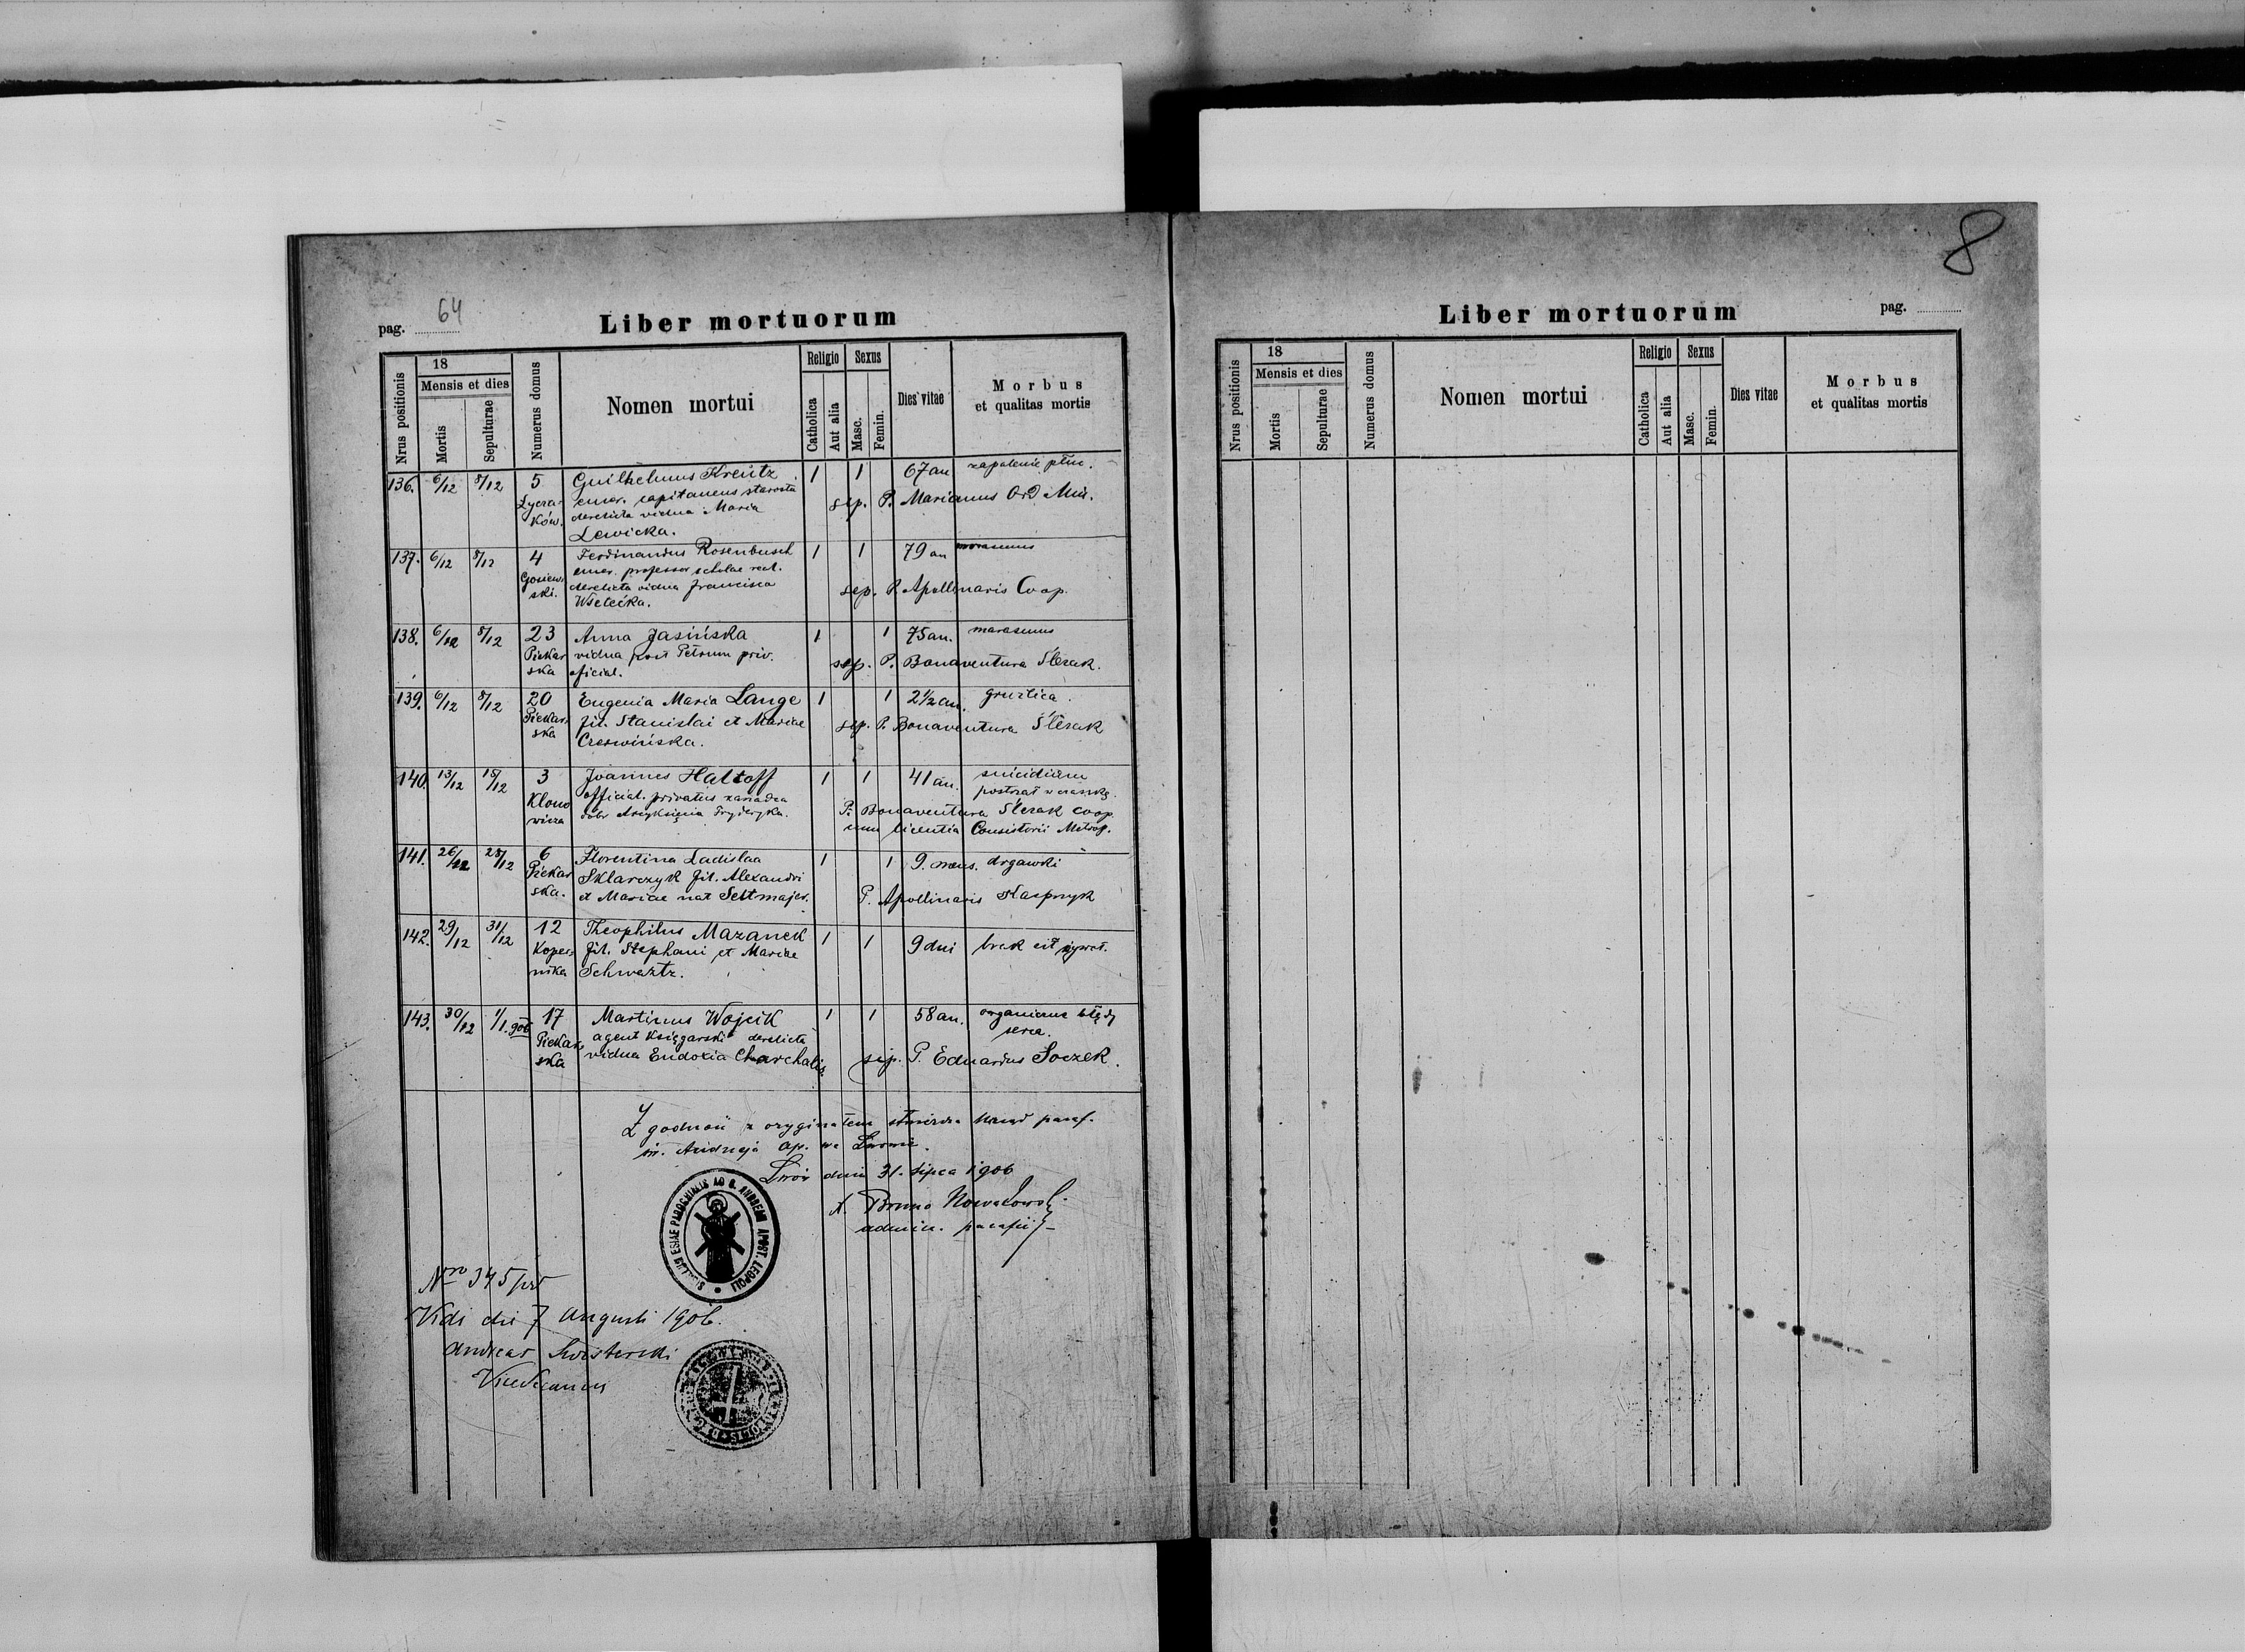 pag. 64
Liber mortuorum
Nrus positionis
18
Mensis et dies
Mortis
Sepulturae
Numerus domus
Nomen mortui
Religio
Catholica
Aut alia
Sexus
Masc.
Femin.
Dies vitae
Morbus
et qualitas mortis
136. 6/12 8/12 5 Guilhelmus Kreutz 1 1 67 an zapalenie płuc.
Łycza- emer. capitaneus starosta sep. P. Marianus Ord Min.
ków. derelicta vidua Maria
Lewicka.
137. 6/12 8/12 4 Ferdinandus Rosenbusch 1 1 79 an marasmus
emer. professor scholae real.
ski. derelicta vidua Francisca sep. P. Apollinaris Coop.
Wsetećka.
138. 6/12 8/12 23 Anna Jasińska 1 1 75 an. marasmus
Piekar vidua post Petrum priv. sep. P. Bonaventura Ślezak.
ska oficial.
139. 6/12 8/12 20 Eugenia Maria Lange 1 1 2½ an. gruzlica.
Piekar- fil. Stanislai et Mariae sep. P. Bonaventura Ślezak
ska Czerwińska.
140. 13/12 15/12 3 Joannes Haltoff 1 1 41 an. suicidium
Klono official. privatus zarządca postrzał w czaszkę.
wicza dóbr Arcyksięcia Fryderyka. P. Bonaventura Ślezak coop.
cum licentia Consistorii Metrop.
141. 26/12 28/12 6 Florentina Ladislaa 1 1 9. mens. drgawki
Piekar Sklarczyk fil. Alexandri
ska. et Mariae nat Settmajer. P. Apollinaris Kasprzyk
142. 29/12 31/12 12 Theophilus Mazanek 1 1 9 dni brak sił żywot.
Koper- fil. Stephani et Mariae
nika Schwartz.
143. 30/12 1/1. 906 17 Martinus Wojcik 1 1 58 an. organiczne błędy
Piekar agent Księgarski derelicta serca.
ska vidua Eudoxia Charchalis sep. P. Eduardus Soczek.
Zgodność z oryginałem stwierdza Urząd paraf.
św. Andrzeja Ap. we Lwowie.
Lwów dnia 31. lipca 1906
X. Bruno Nowakowski
admin. parafii
SIGILLUM ECCLESIAE PAROCHIALIS AD S. ANDREAM APOST. LEOPOLI
Nro 345/
Vidi die 7 Augusti 1906.
Andreas
Vicedecanus
8
Liber mortuorum
pag.
Nrus positionis
18
Mensis et dies
Mortis
Sepulturae
Numerus domus
Nomen mortui
Religio
Catholica
Aut alia
Sexus
Masc.
Femin.
Dies vitae
Morbus
et qualitas mortis